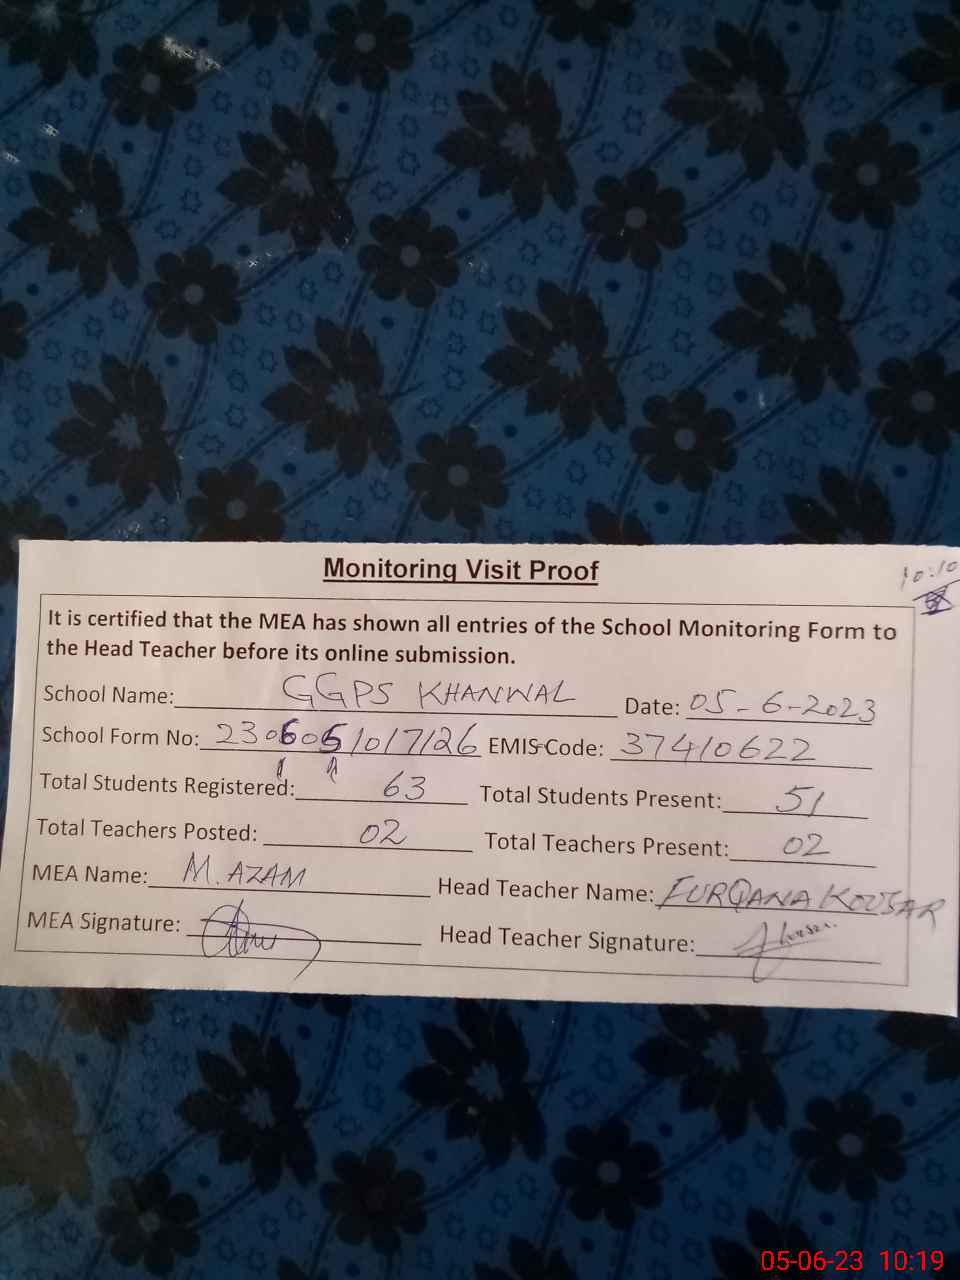 Monitoring Visit Proof
10:10
It is certified that the MEA has shown all entries of the School Monitoring Form to
the Head Teacher before its online submission.
School Name: GGPS KHANWAL Date: 05-6-2023
School Form No: 230605/017/26 EMIS Code: 37410622
Total Students Registered: 63 Total Students Present: 51
Total Teachers Posted: 02 Total Teachers Present: 02
MEA Name: M. AZAM Head Teacher Name: FURQANA KOUSAR
MEA Signature: Head Teacher Signature:
05-06-23 10:19